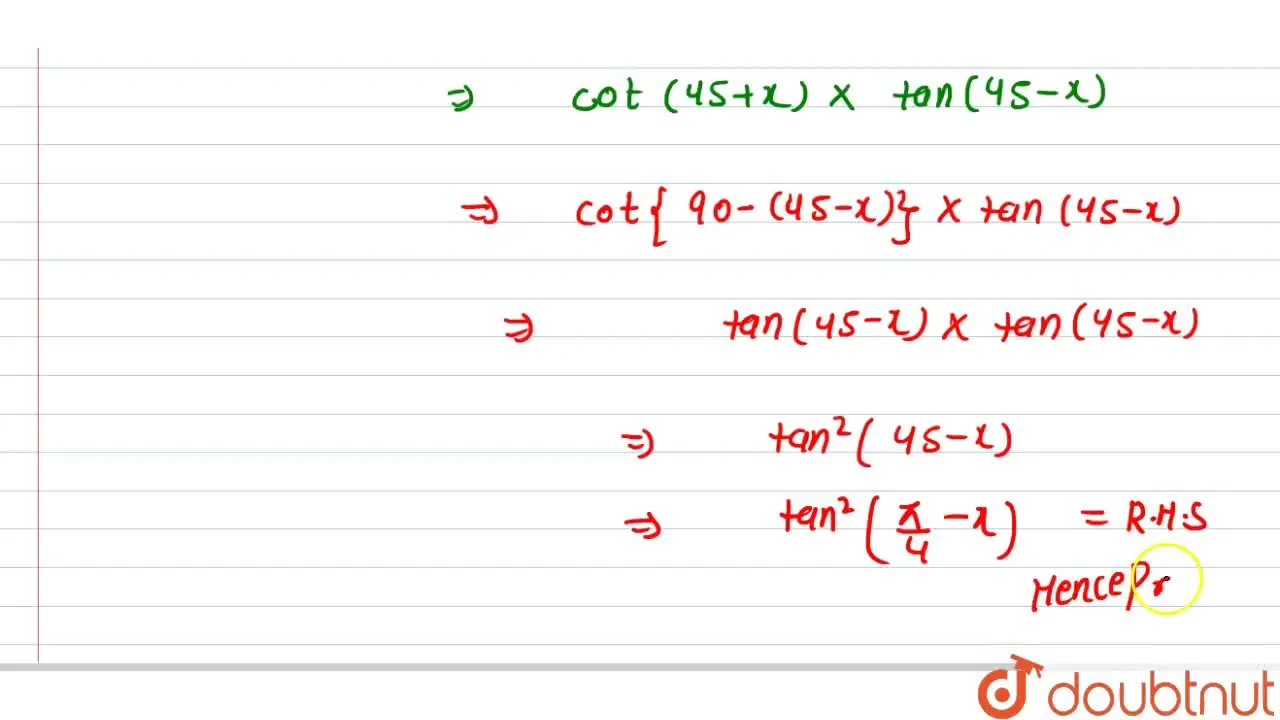 ⇒ cot (45+x) × tan(45-x)
⇒ cot{ 90-(45-x)} × tan (45-x)
⇒ tan(45-x) × tan(45-x)
⇒ tan²( 45-x)
⇒ tan² (π/4 -x) = R.H.S
Hence Pr
doubtnut